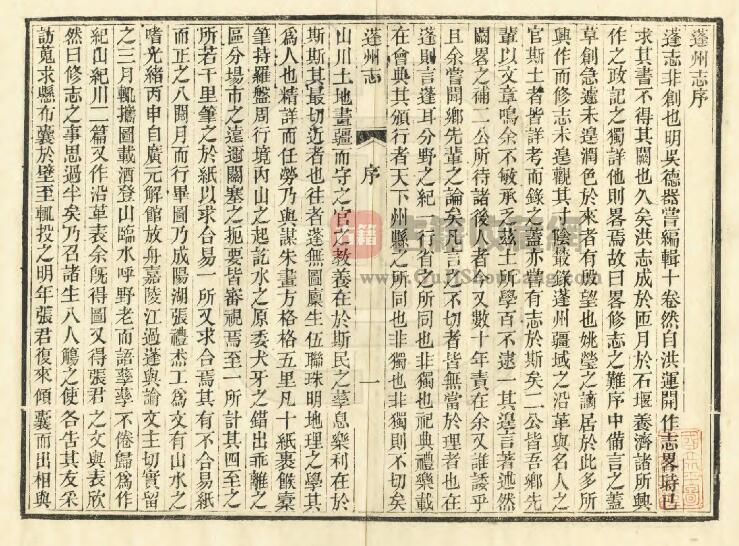 蓬州志序
蓬志非創也明吳德器嘗編輯十卷然自洪運開作志畧時已
求其書不得其闕也久矣洪志成於匝月於石堰養濟諸所興
作之政記之獨詳他則畧焉故曰畧修志之難序中備言之蓋
草創急遽未遑潤色於來者有微望也姚瑩之謫居於此多所
興作而修志未遑觀其寸陰叢錄蓬州疆域之沿革與名人之
官斯土者皆詳考而錄之蓋亦嘗有志於斯矣二公皆吾鄉先
輩以文章鳴余不敏承乏茲土所學百不逮一其遑言著述然
闕畧之補二公所待諸後人者今又數十年責在余又誰諉乎
且余嘗聞鄉先輩之論矣凡言之不切者皆無當於理者也在
蓬則言蓬耳分野之紀一行省之所同也非獨也祀典禮樂載
在會典其頒行者天下州縣之所同也非獨也非獨則不切矣
蓬州志 序 一
山川土地畫疆而守之官之教養在於斯民之孳息樂利在於
斯斯其最切近者也往者蓬無圖廩生伍聯珠明地理之學其
爲人也精詳而任勞乃與謀朱畫方格格五里凡十紙裹餱橐
筆持羅盤周行境內山之起訖水之原委犬牙之錯出乖離之
區分場市之遠邇關塞之扼要皆審視焉至一所計其四至之
所若干里筆之於紙以求合易一所又求合焉其有不合易紙
而正之八閱月而行畢圖乃成陽湖張禮杰工爲文有山水之
嗜光緒丙申自廣元解館放舟嘉陵江過蓬與論文主切實留
之三月輒攜圖載酒登山臨水呼野老而語孳孳不倦歸爲作
紀山紀川二篇又作沿革表余旣得圖又得張君之文與表欣
然曰修志之事思過半矣乃召諸生八人觴之使各告其友采
訪蒐求縣布囊於壁至輒投之明年張君復來傾囊而出相與
古籍收藏网
www.GuJiShouCang.com